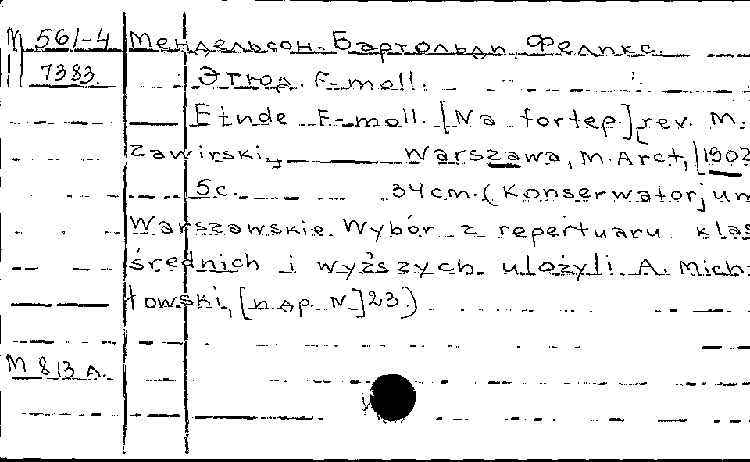 М 561-4 Мендельсон-Бартольди, Феликс.
7383 Этюд. F-moll.
Etnde F-moll. [Na fortep.] rev. M.
Zawirski, Warszawa, M. Arct, [1902
5с. 34 cm. (Konserwatorjum
Warszawskie. Wybór z repertuaru klas
średnich i wyższych ulożyli A. Mich
łowski, [и др. N] 23.)
М 813 А.